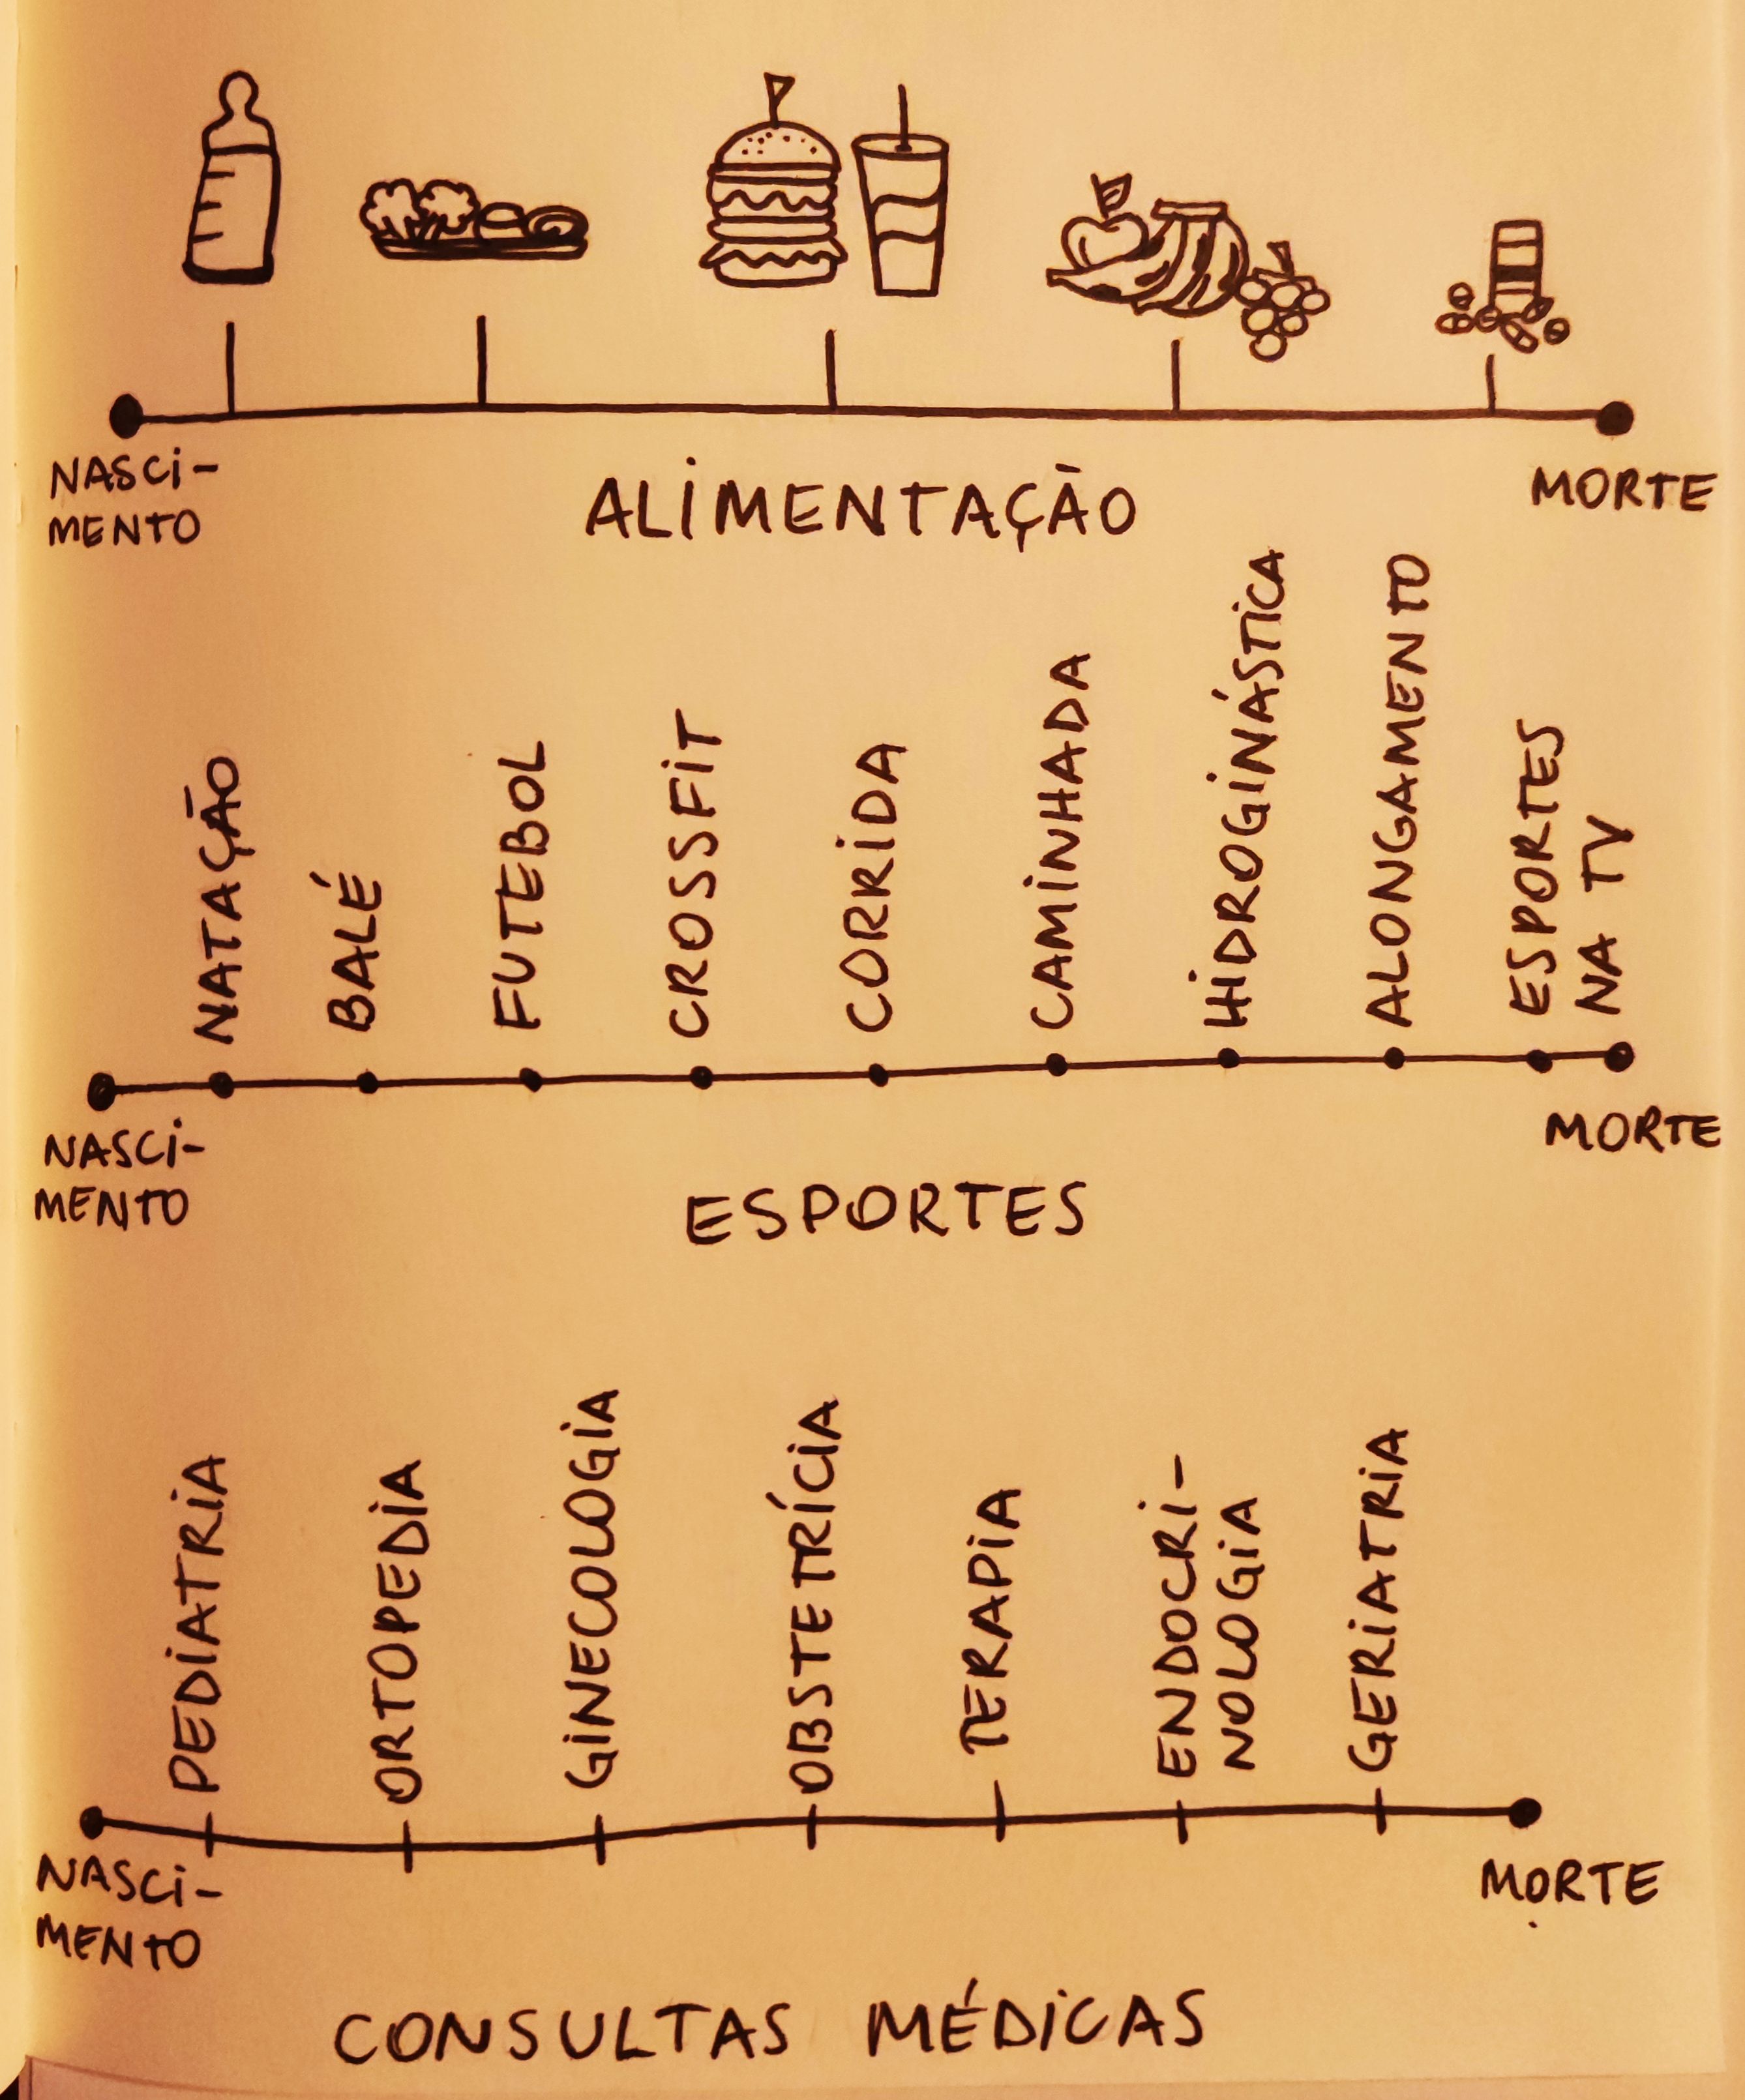 NASCI-
MENTO
MORTE
ALIMENTAÇÃO
NATAÇÃO
BALÉ
FUTEBOL
CROSSFIT
CORRIDA
CAMINHADA
HIDROGINÁSTICA
ALONGAMENTO
ESPORTES
NA TV
NASCI-
MENTO
MORTE
ESPORTES
PEDIATRIA
ORTOPEDIA
GINECOLOGIA
OBSTETRÍCIA
TERAPIA
ENDOCRI-
NOLOGIA
GERIATRIA
NASCI-
MENTO
MORTE
CONSULTAS MÉDICAS